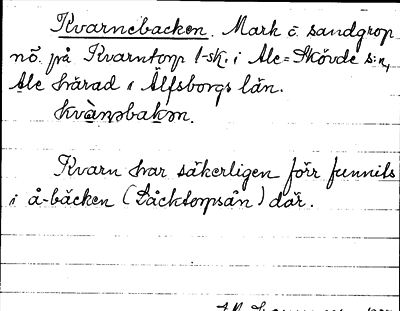 Kvarnebacken. Mark o. sandgrop
nö. på Kvarntorp 1-sk. i Ale-Skövde s:n,
Ale härad i Älfsborgs län.
kvὰnəbakən.
Kvarn har säkerligen förr funnits
i å-bäcken (Låcktorpsån) där.